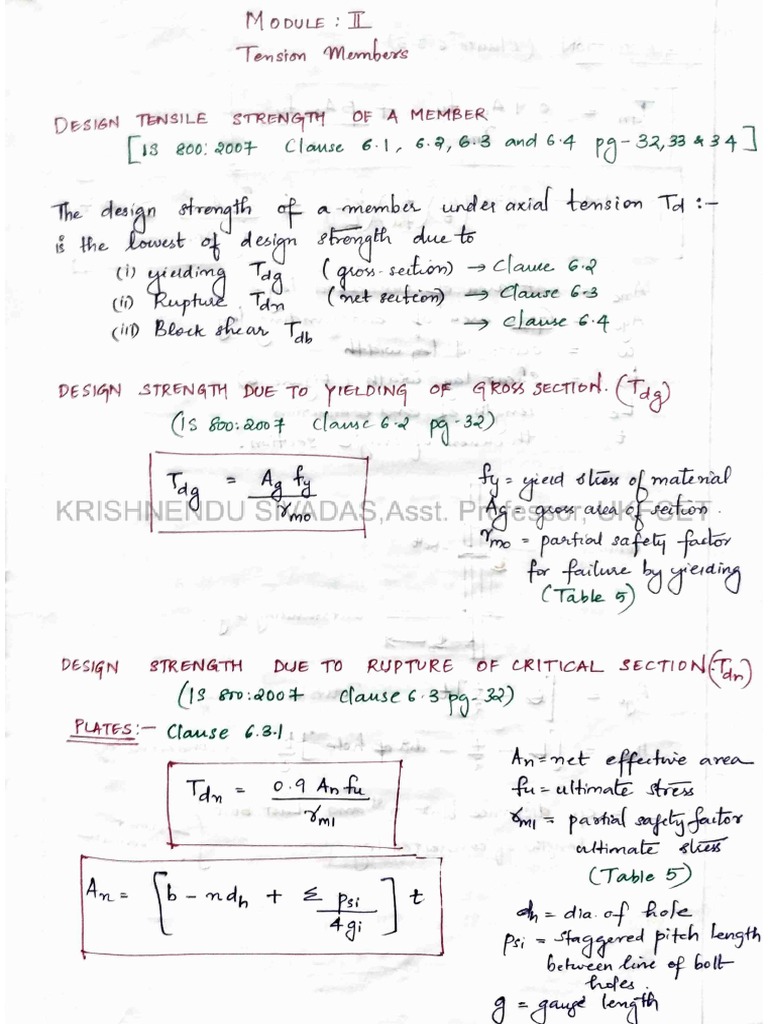 MODULE : II
Tension Members
DESIGN TENSILE STRENGTH OF A MEMBER
[IS 800:2007 Clause 6.1, 6.2, 6.3 and 6.4 pg-32,33 & 34]
The design strength of a member under axial tension Td :-
is the lowest of design strength due to
(i) yielding Tdg (gross-section) → Clause 6.2
(ii) Rupture Tdn (net section) → Clause 6.3
(iii) Block shear Tdb → Clause 6.4
DESIGN STRENGTH DUE TO YIELDING OF GROSS SECTION. (Tdg)
(IS 800:2007 Clause 6.2 pg-32)
Tdg = Ag fy / γmo
fy = yield stress of material
Ag = gross area of section.
γmo = partial safety factor
for failure by yielding
(Table 5)
KRISHNENDU SIVADAS,Asst. Professor, UKFCET
DESIGN STRENGTH DUE TO RUPTURE OF CRITICAL SECTION (Tdn)
(IS 800:2007 Clause 6.3 pg-32)
PLATES:- Clause 6.3.1
Tdn = 0.9 An fu / γm1
An = [b - ndh + Σ psi / 4gi] t
An = net effective area
fu = ultimate stress
γm1 = partial safety factor
ultimate stress
(Table 5)
dh = dia. of hole
psi = staggered pitch length
between line of bolt
holes.
g = gauge length